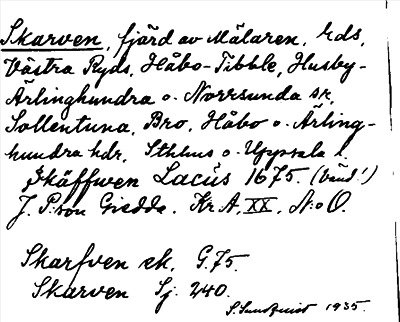 Skarven, fjärd av Mälaren, Eds,
Västra Ryds, Håbo-Tibble, Husby-
Ärlinghundra o. Norrsunda sn,
Sollentuna, Bro, Håbo o. Ärling-
hundra hdr, Sthlms o. Uppsala l.
Skäffwen Lacus 1675. (Vänd!)
J. P:son Giedda. Kr. A, XX, N:o O.
Skarfven ek. G. 75.
Skarven Sj. 240.
S. Sundquist 1935.